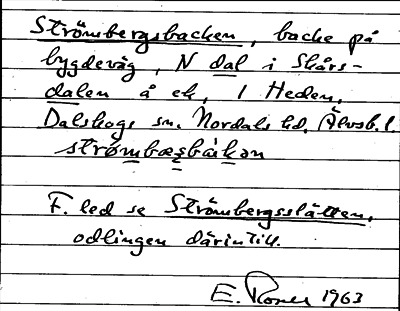 Strömbergsbacken, backe på
bygdeväg, N dal i Skårs-
dalen å ek, 1 Heden,
Dalskogs sn. Nordals hd. Älvsb. l.
strömbærsbàkan
F. led se Strömbergsslätten,
odlingen därintill.
E. 1963